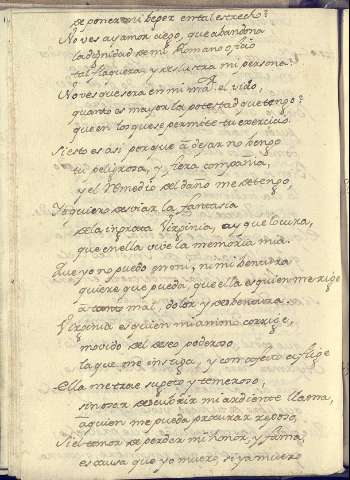 se poner ni beber en tal estrecho?
No ves ay amor ciego, que abandona
la dignidad de mi Romano oficio
tal flaqueza, y deslustra mi persona?
No ves que sera en mi mal el vicio
quanto es mayor la potestad que tengo?
que en los que se permite tu exercicio
Si esto es asi porque a dejar no bengo
tu peligrosa, y fiera compañia,
y el Remedio del daño me detengo,
Yo quiero desviar la fantasia
de la ingrata Virginia, ay que locura,
que en ella vive la memoria mia.
Que yo no puedo ni mi bentura
quiere que pueda, que ella es quien me rige
a tanto mal, dolor y desbentura.
Virginia es quien mi animo corrige,
movido del deseo poderoso
la que me instiga, y con afecto aflige
Ella me trae sugeto y temeroso,
sin osar descubrir mi ardiente llama,
a quien me pueda procurar reposo,
Si el temor de perder mi honor, y fama,
es causa que yo muero, si ya muero